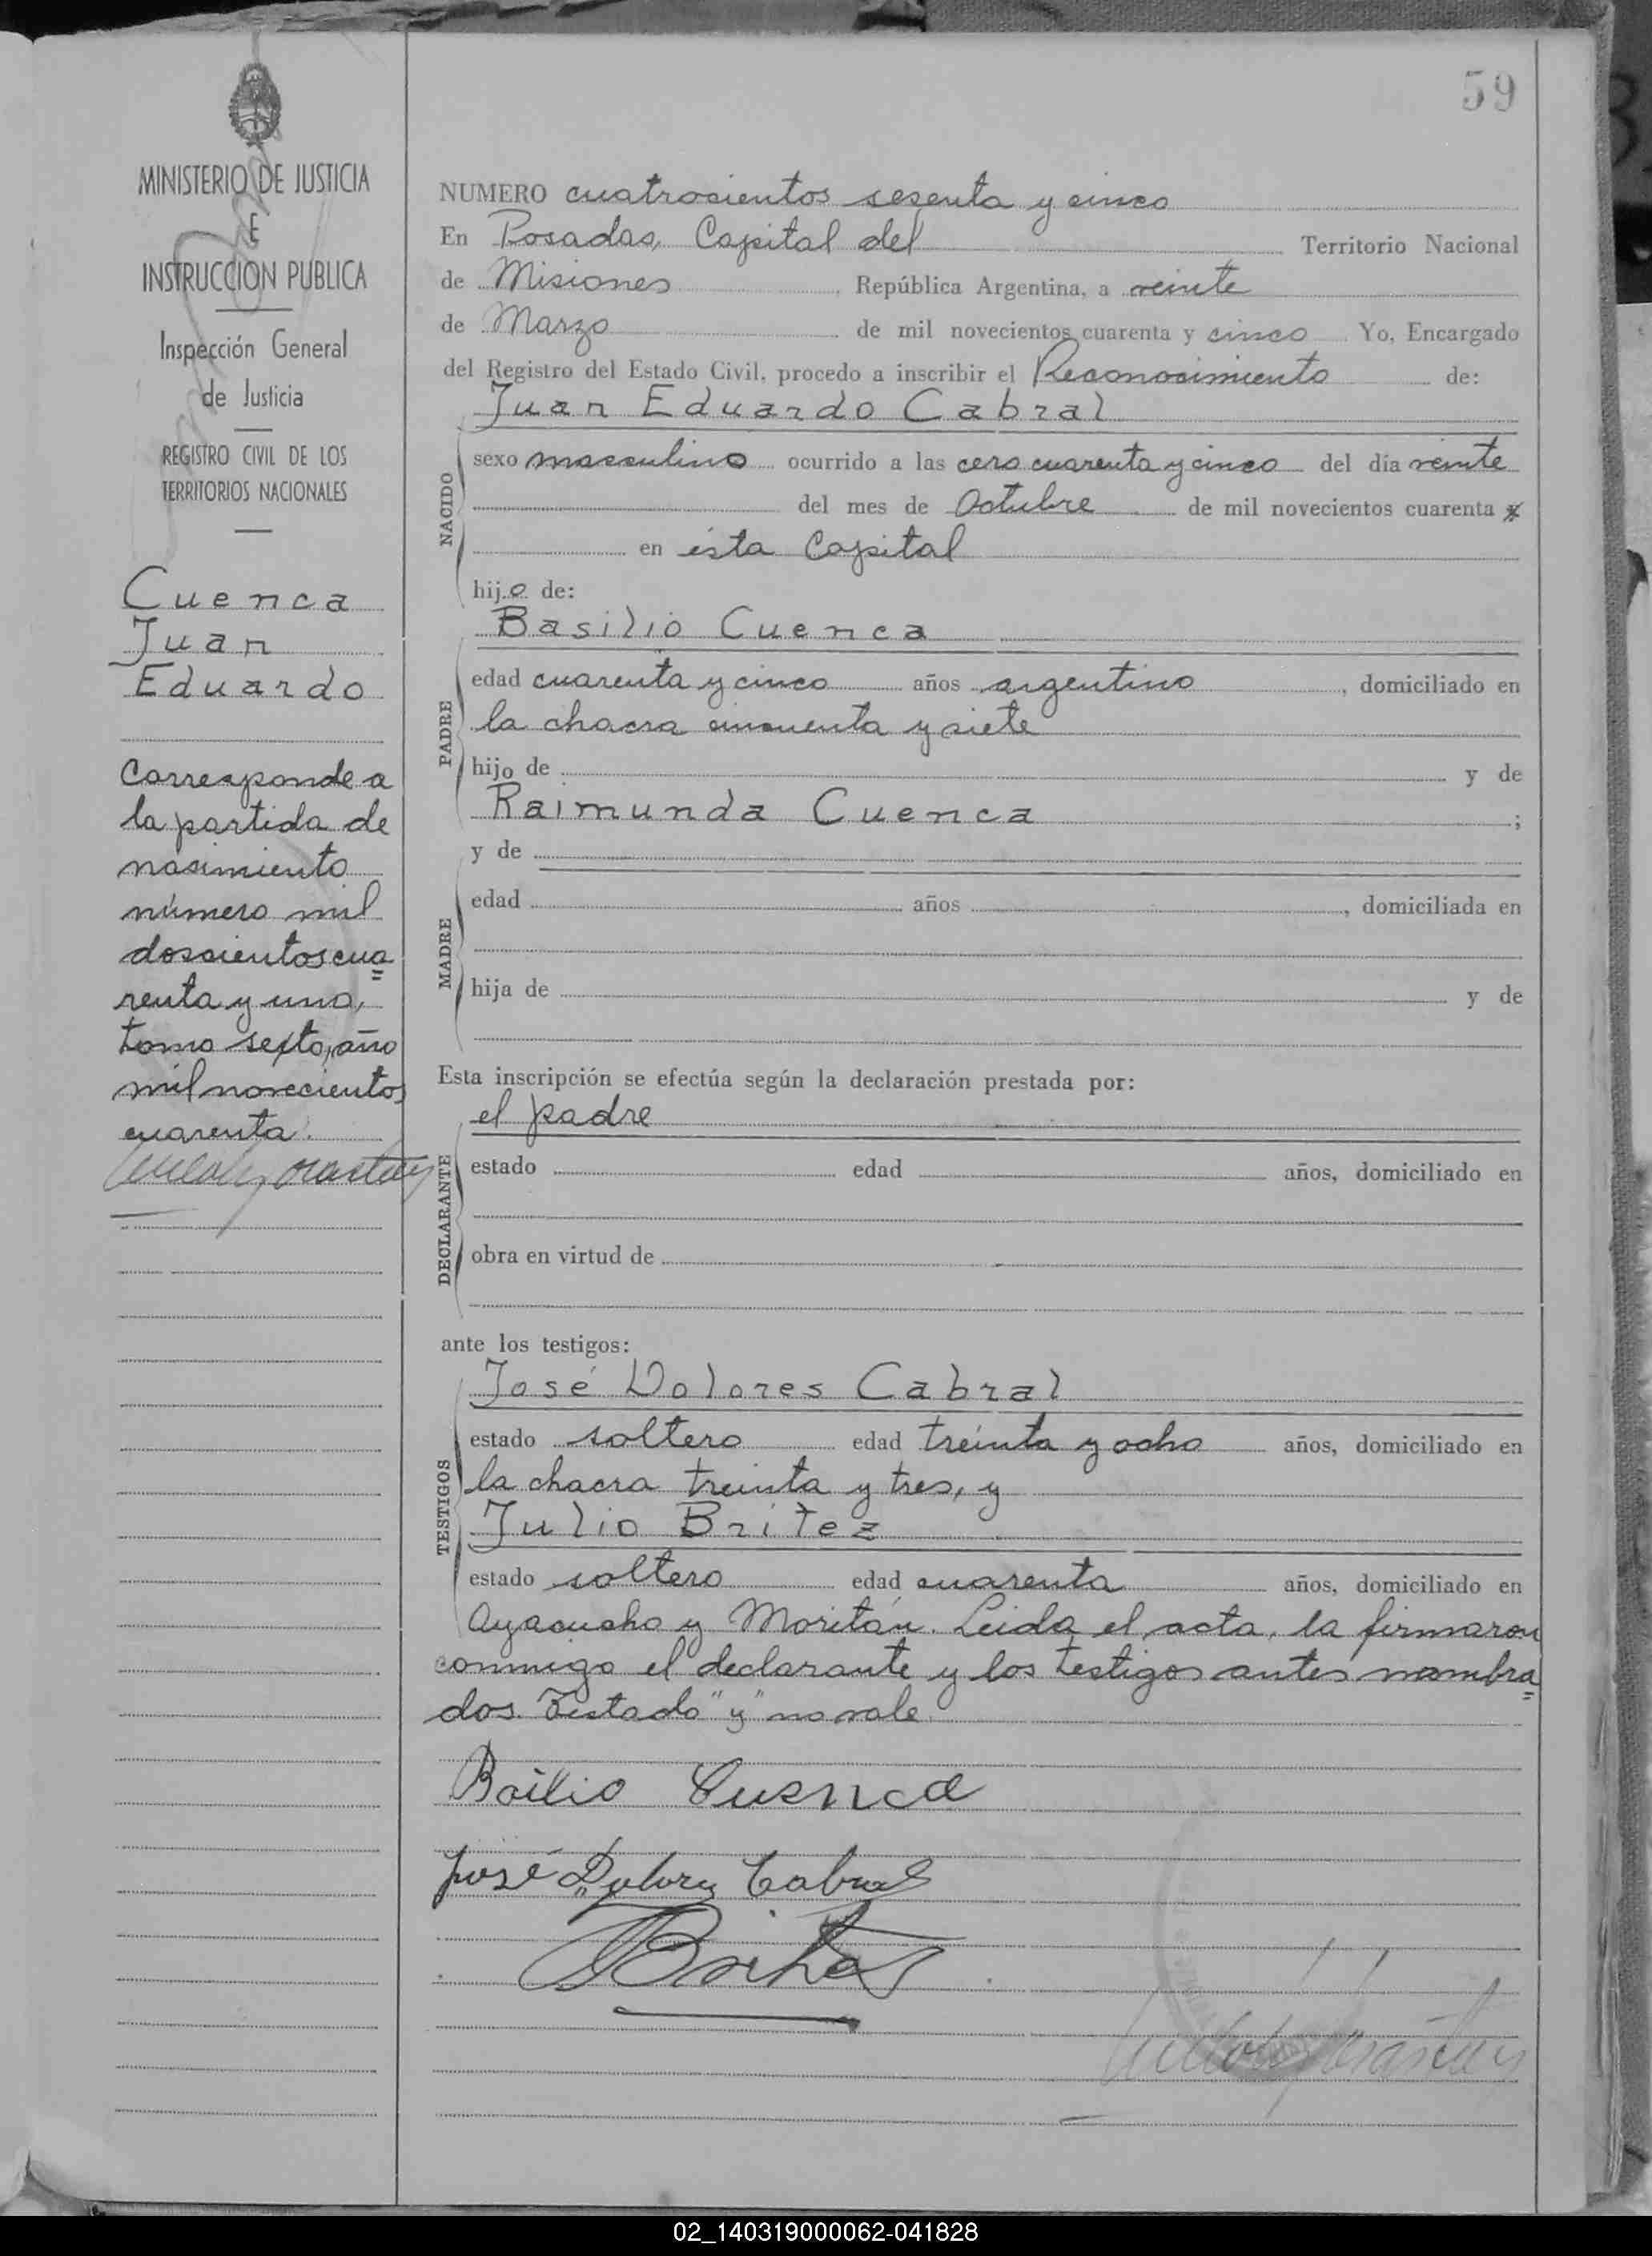 59
MINISTERIO DE JUSTICIA
E
INSTRUCCION PUBLICA
Inspección General
de Justicia
REGISTRO CIVIL DE LOS
TERRITORIOS NACIONALES
Cuenca
Juan
Eduardo
Corresponde a
la partida de
nacimiento
número mil
doscientos cua=
renta y uno,
tomo sexto, año
mil novecientos
cuarenta.
NUMERO cuatrocientos sesenta y cinco
En Posadas, Capital del Territorio Nacional
de Misiones República Argentina, a veinte
de Marzo de mil novecientos cuarenta y cinco Yo, Encargado
del Registro del Estado Civil, procedo a inscribir el Reconocimiento de:
Juan Eduardo Cabral
NACIDO
sexo masculino ocurrido a las cero cuarenta y cinco del día veinte
del mes de Octubre de mil novecientos cuarenta y
en ésta Capital
hijo de:
Basilio Cuenca
PADRE
edad cuarenta y cinco años argentino, domiciliado en
la chacra cincuenta y siete
hijo de y de
Raimunda Cuenca ;
y de
MADRE
edad años , domiciliada en
hija de y de
Esta inscripción se efectúa según la declaración prestada por:
el padre
DECLARANTE
estado edad años, domiciliado en
obra en virtud de
ante los testigos:
José Dolores Cabral
TESTIGOS
estado soltero edad treinta y ocho años, domiciliado en
la chacra treinta y tres, y
Julio Britez
estado soltero edad cuarenta años, domiciliado en
Ayacucho y Moritán. Leida el acta, la firmaron
conmigo el declarante y los testigos antes nombra=
dos. Testado "y" no vale.
Basilio Cuenca
José Dolores Cabral
JBritez
02_140319000062-041828